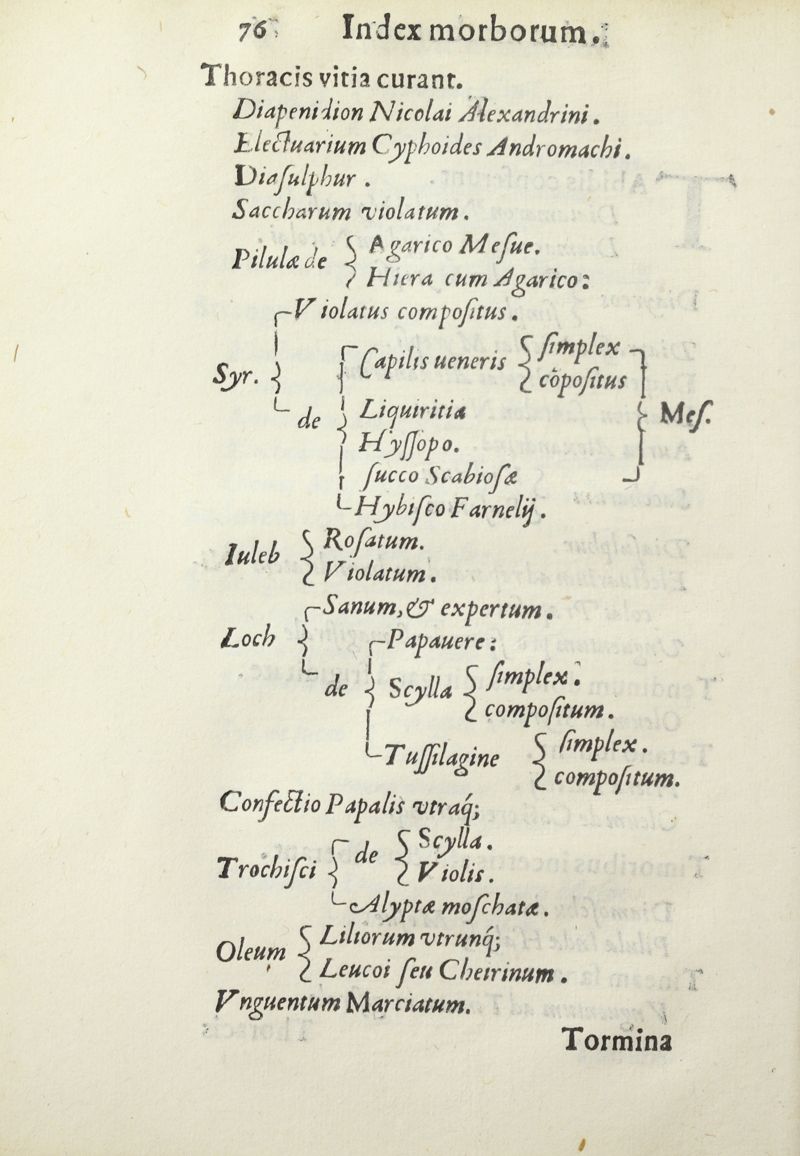 76 Index morborum.
Thoracis vitia curant.
Diapenidion Nicolai Alexandrini.
Electuarium Cyphoides Andromachi.
Diaſulphur.
Saccharum violatum.
Pilulæ de { Agarico Meſue.
Hiera cum Agarico:
Violatus compoſitus.
Capilis ueneris { ſimplex
cōpoſitus
Syr. {
de { Liquiritia } Meſ.
Hyſſopo.
ſucco Scabioſæ
Hybiſco Farnelij.
Iuleb { Roſatum.
Violatum.
Sanum, & expertum.
Loch { Papauere:
de { Scylla { ſimplex.
compoſitum.
Tuſſilagine { ſimplex.
compoſitum.
Confectio Papalis vtraq́;
Trochiſci { de { Scylla.
Violis.
Alyptæ moſchatæ.
Oleum { Liliorum vtrunq́;
Leucoi ſeu Cheirinum.
Vnguentum Marciatum.
Tormina